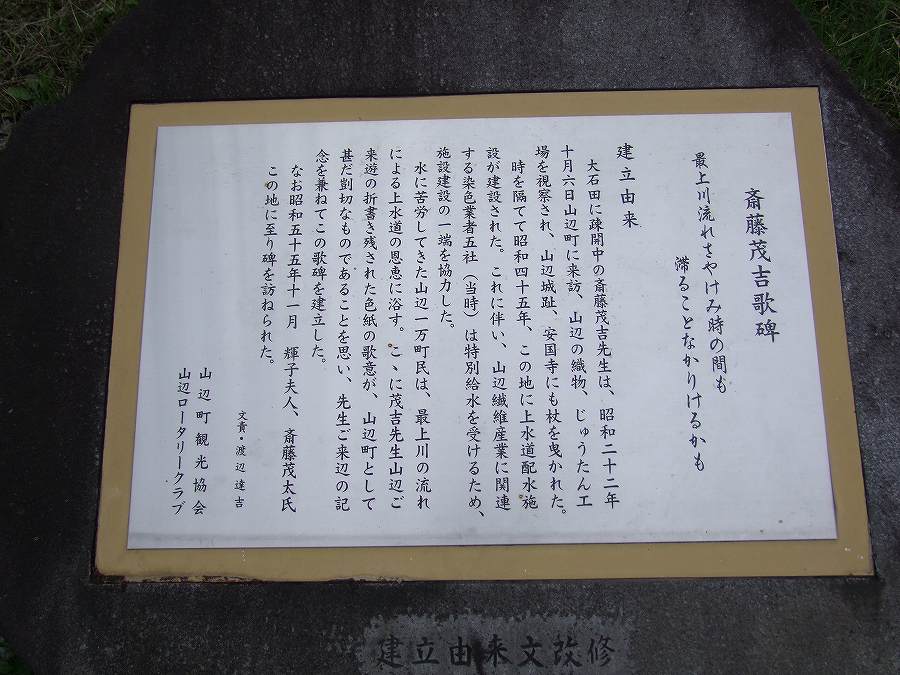 斎藤茂吉歌碑
最上川流れさやけみ時の間も
滞ることなかりけるかも
建立由来
大石田に疎開中の斎藤茂吉先生は、昭和二十二年
十月六日山辺町に来訪、山辺の織物、じゅうたん工
場を視察され、山辺城趾、安国寺にも杖を曳かれた。
時を隔てて昭和四十五年、この地に上水道配水施
設が建設された。これに伴い、山辺繊維産業に関連
する染色業者五社（当時）は特別給水を受けるため、
施設建設の一端を協力した。
水に苦労してきた山辺一万町民は、最上川の流れ
による上水道の恩恵に浴す。こゝに茂吉先生山辺ご
来遊の折書き残された色紙の歌意が、山辺町として
甚だ剴切なものであることを思い、先生ご来辺の記
念を兼ねてこの歌碑を建立した。
なお昭和五十五年十一月　輝子夫人、斎藤茂太氏
この地に至り碑を訪ねられた。
文責・渡辺達吉
山辺町観光協会
山辺ロータリークラブ
建立由来文改修